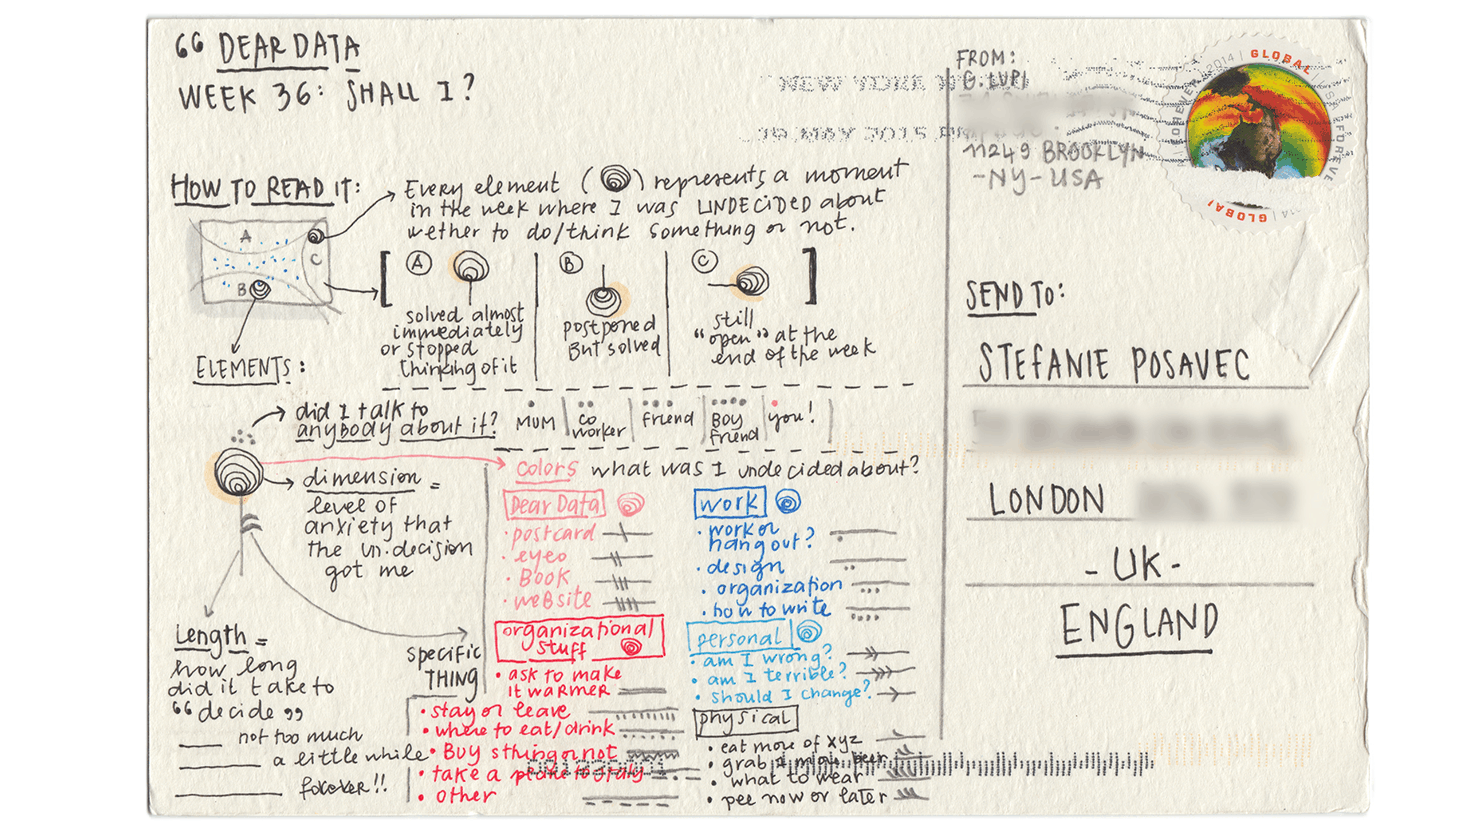 “ DEAR DATA
WEEK 36: SHALL I?
HOW TO READ IT:
Every element ( ) represents a moment
in the week where I was UNDECIDED about
wether to do/think something or not.
A
B
C
A
solved almost
immediately
or stopped
thinking of it
B
postponed
But solved
C
still
"open" at the
end of the week
ELEMENTS:
did I talk to
anybody about it?
MUM
co
worker
friend
Boy
friend
you!
dimension =
level of
anxiety that
the un.decision
got me
Length =
how long
did it take to
“decide”
not too much
a little while
forever!!
specific
THING
colors what was I undecided about?
Dear Data
• postcard
• eyeo
• Book
• website
organizational
stuff
• ask to make
it warmer
• stay or leave
• where to eat/drink
• Buy sthing or not
• take a to Italy
• other
work
• work or
hang out?
• design
• organization
• how to write
personal
• am I wrong?
• am I terrible?
• should I change?
physical
• eat more of xyz
• grab 1 more beer
• what to wear
• pee now or later
NEW YORK
19 MAY 2015
FROM:
G. LUPI
11249 BROOKLYN
-NY-USA
GLOBAL
FOREVER
2014
USA
FOREVER
GLOBAL
SEND TO:
STEFANIE POSAVEC
LONDON
- UK -
ENGLAND